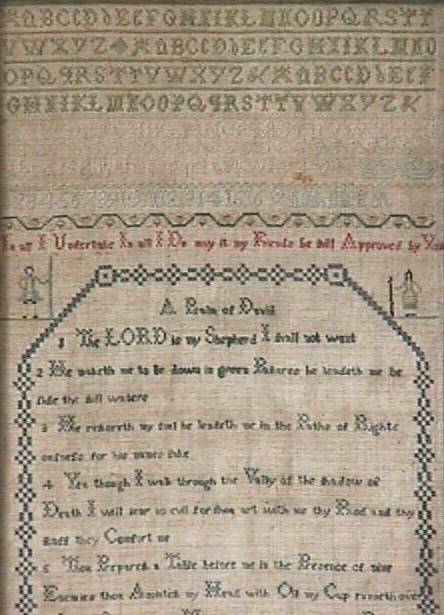 A B C D E F G H I K L M N O O P Q R S T T
V W X Y Z A B C C D E E F G H I K L M N O
O P Q R S T T V W X Y Z & A B C C D E E F
G H I K L M N O O P Q R S T T V W X Y Z &
In all I Undertake In all I Do may it my Friends be still Approved by You
A Psalm of David
1 The LORD is my Shepherd I shall not want
2 He maketh me to lie down in green Pastures he leadeth me be
side the still waters
3 He restoreth my soul he leadeth me in the Paths of Righte
ousness for his names sake
4 Yea though I walk through the Vally of the shadow of
Death I will fear no evil for thou art with me thy Rod and thy
staff they Comfort me
5 Thou Preparest a Table before me in the Presence of mine
Enemies thou Anointest my Head with Oil my Cup runneth over